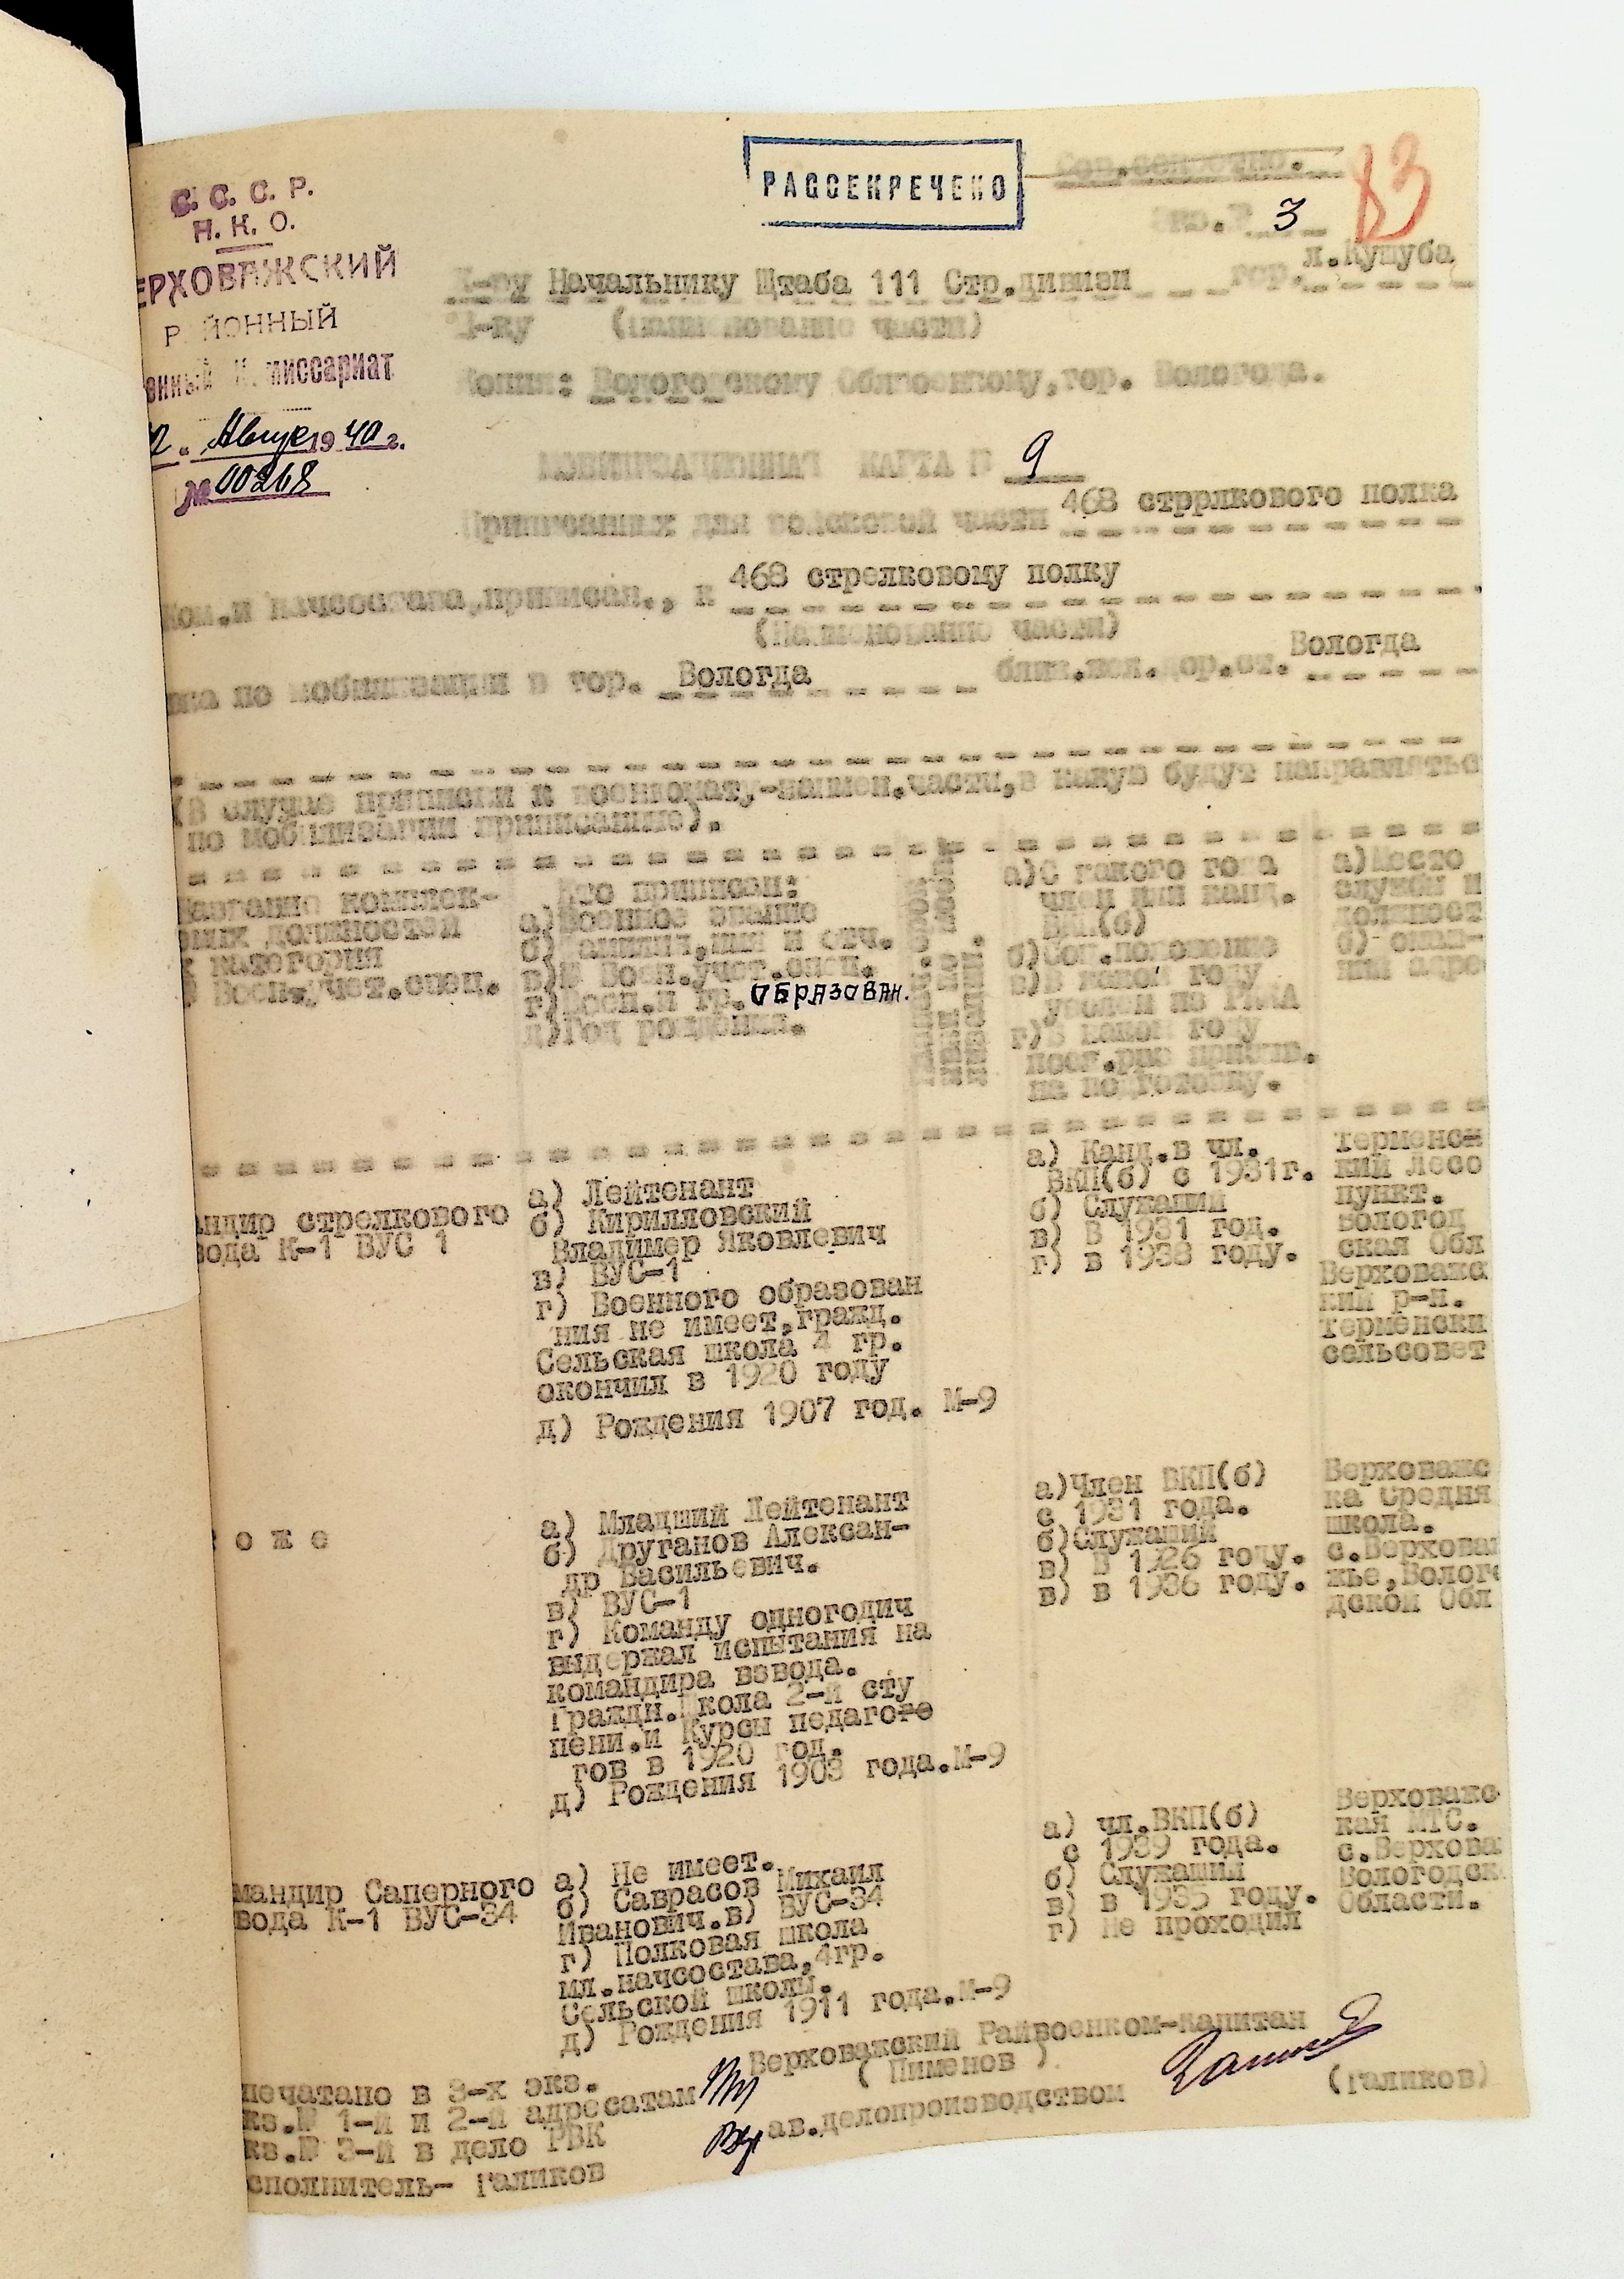 РАССЕКРЕЧЕНО
Сов.секретно.
83
Экз.№ 3
С. С. С. Р.
Н. К. О.
ЕРХОВАЖСКИЙ
Р ЙОННЫЙ
енный К миссариат
Август 1940 г.
№ 00268
К-ру Начальнику Штаба 111 Стр.дивизи гор. л.Кущуба
(наименование части)
Копия: Вологодскому Облвоенкому,гор. Вологода.
МОБИЛИЗАЦИОННАЯ КАРТА № 9
Приписанных для войсковой части 468 стррлкового полка
ком.и начсостава,приписан., к 468 стрелковому полку
(Наименование части)
вка по мобилизации в гор. Вологда ближ.жел.дор.ст. Вологда
(В случае приписки к военкомату-наимен.части,в какую будут направлятьс
по мобилизации приписанные).
Название комплек-
емых должностей
категория
Воен.учет.спец.
Кто приписан:
а)Военное звание
б)Фамилия,имя и отч.
в)№ Воен.учет.спец.
г)Восп.и гр. ОБРАЗОВАН.
д)Год рождения.
а)С какого года
член или канд.
ВКП(б)
б)Соц.положение
в)В каком году
уволен из РККА
г)В каком году
посл.раз призыв.
на подготовку.
а)Место
службы и
должност
б) 
ний адре
андир стрелкового
вода К-1 ВУС 1
а) Лейтенант
б) Кирилловский
Владимер Яковлевич
в) ВУС-1
г) Военного образован
ния не имеет,гражд.
Сельская школа 4 гр.
окончил в 1920 году
д) Рождения 1907 год. М-9
а) Канд.в чл.
ВКП(б) с 1931г.
б) Служащий
в) В 1931 год.
г) в 1938 году.
Терменск
кий лесо
пункт.
Вологод
ская Обл
Верховажс
ким р-н.
Терменски
сельсовет
о ж е
а) Младший Лейтенант
б) Друганов Алексан-
др Васильевич.
в) ВУС-1
г) Команду одногодич
выдержал испытания на
командира взвода.
Граждн.Школа 2-й сту
пени.и Курсы педагого
гов в 1920 год.
д) Рождения 1903 года.М-9
а)Член ВКП(б)
с 1931 года.
б)Служащий
в) В 1926 году.
в) в 1936 году.
Верховажс
ка средня
школа.
с.Верхова
жье,Волог
дской Обл
мандир Саперного
вода К-1 ВУС-34
а) Не имеет.
б) Саврасов Михаил
Иванович.в) ВУС-34
г) Полковая школа
мл.начсостава,4гр.
Сельской школы.
д) Рождения 1911 года.М-9
а) чл.ВКП(б)
с 1939 года.
б) Служащий
в) в 1935 году.
г) Не проходил
Верховажс
кая МТС.
с.Верхова
Вологодск
Области.
Верховажский Райвоенком-капитан
( Пименов )
ав.делопроизводством
(Галиков)
печатано в 3-х экз.
кз.№ 1-й и 2-й адресатам
кз.№ 3-й в дело РВК
сполнитель- Галиков